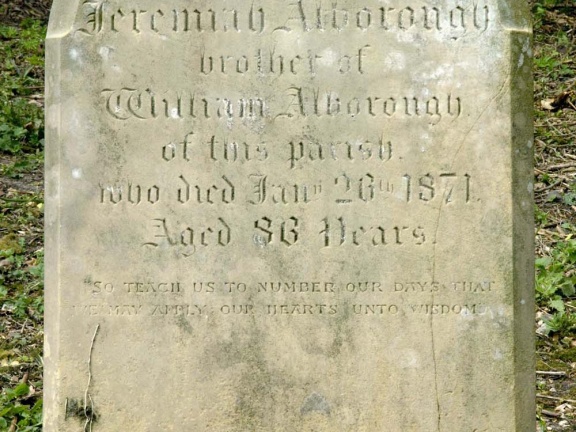 Jeremiah Alborough
brother of
William Alborough
of this parish.
who died Jany 26th 1871.
Aged 86 Years.
"SO TEACH US TO NUMBER OUR DAYS THAT
WE MAY APPLY OUR HEARTS UNTO WISDOM."